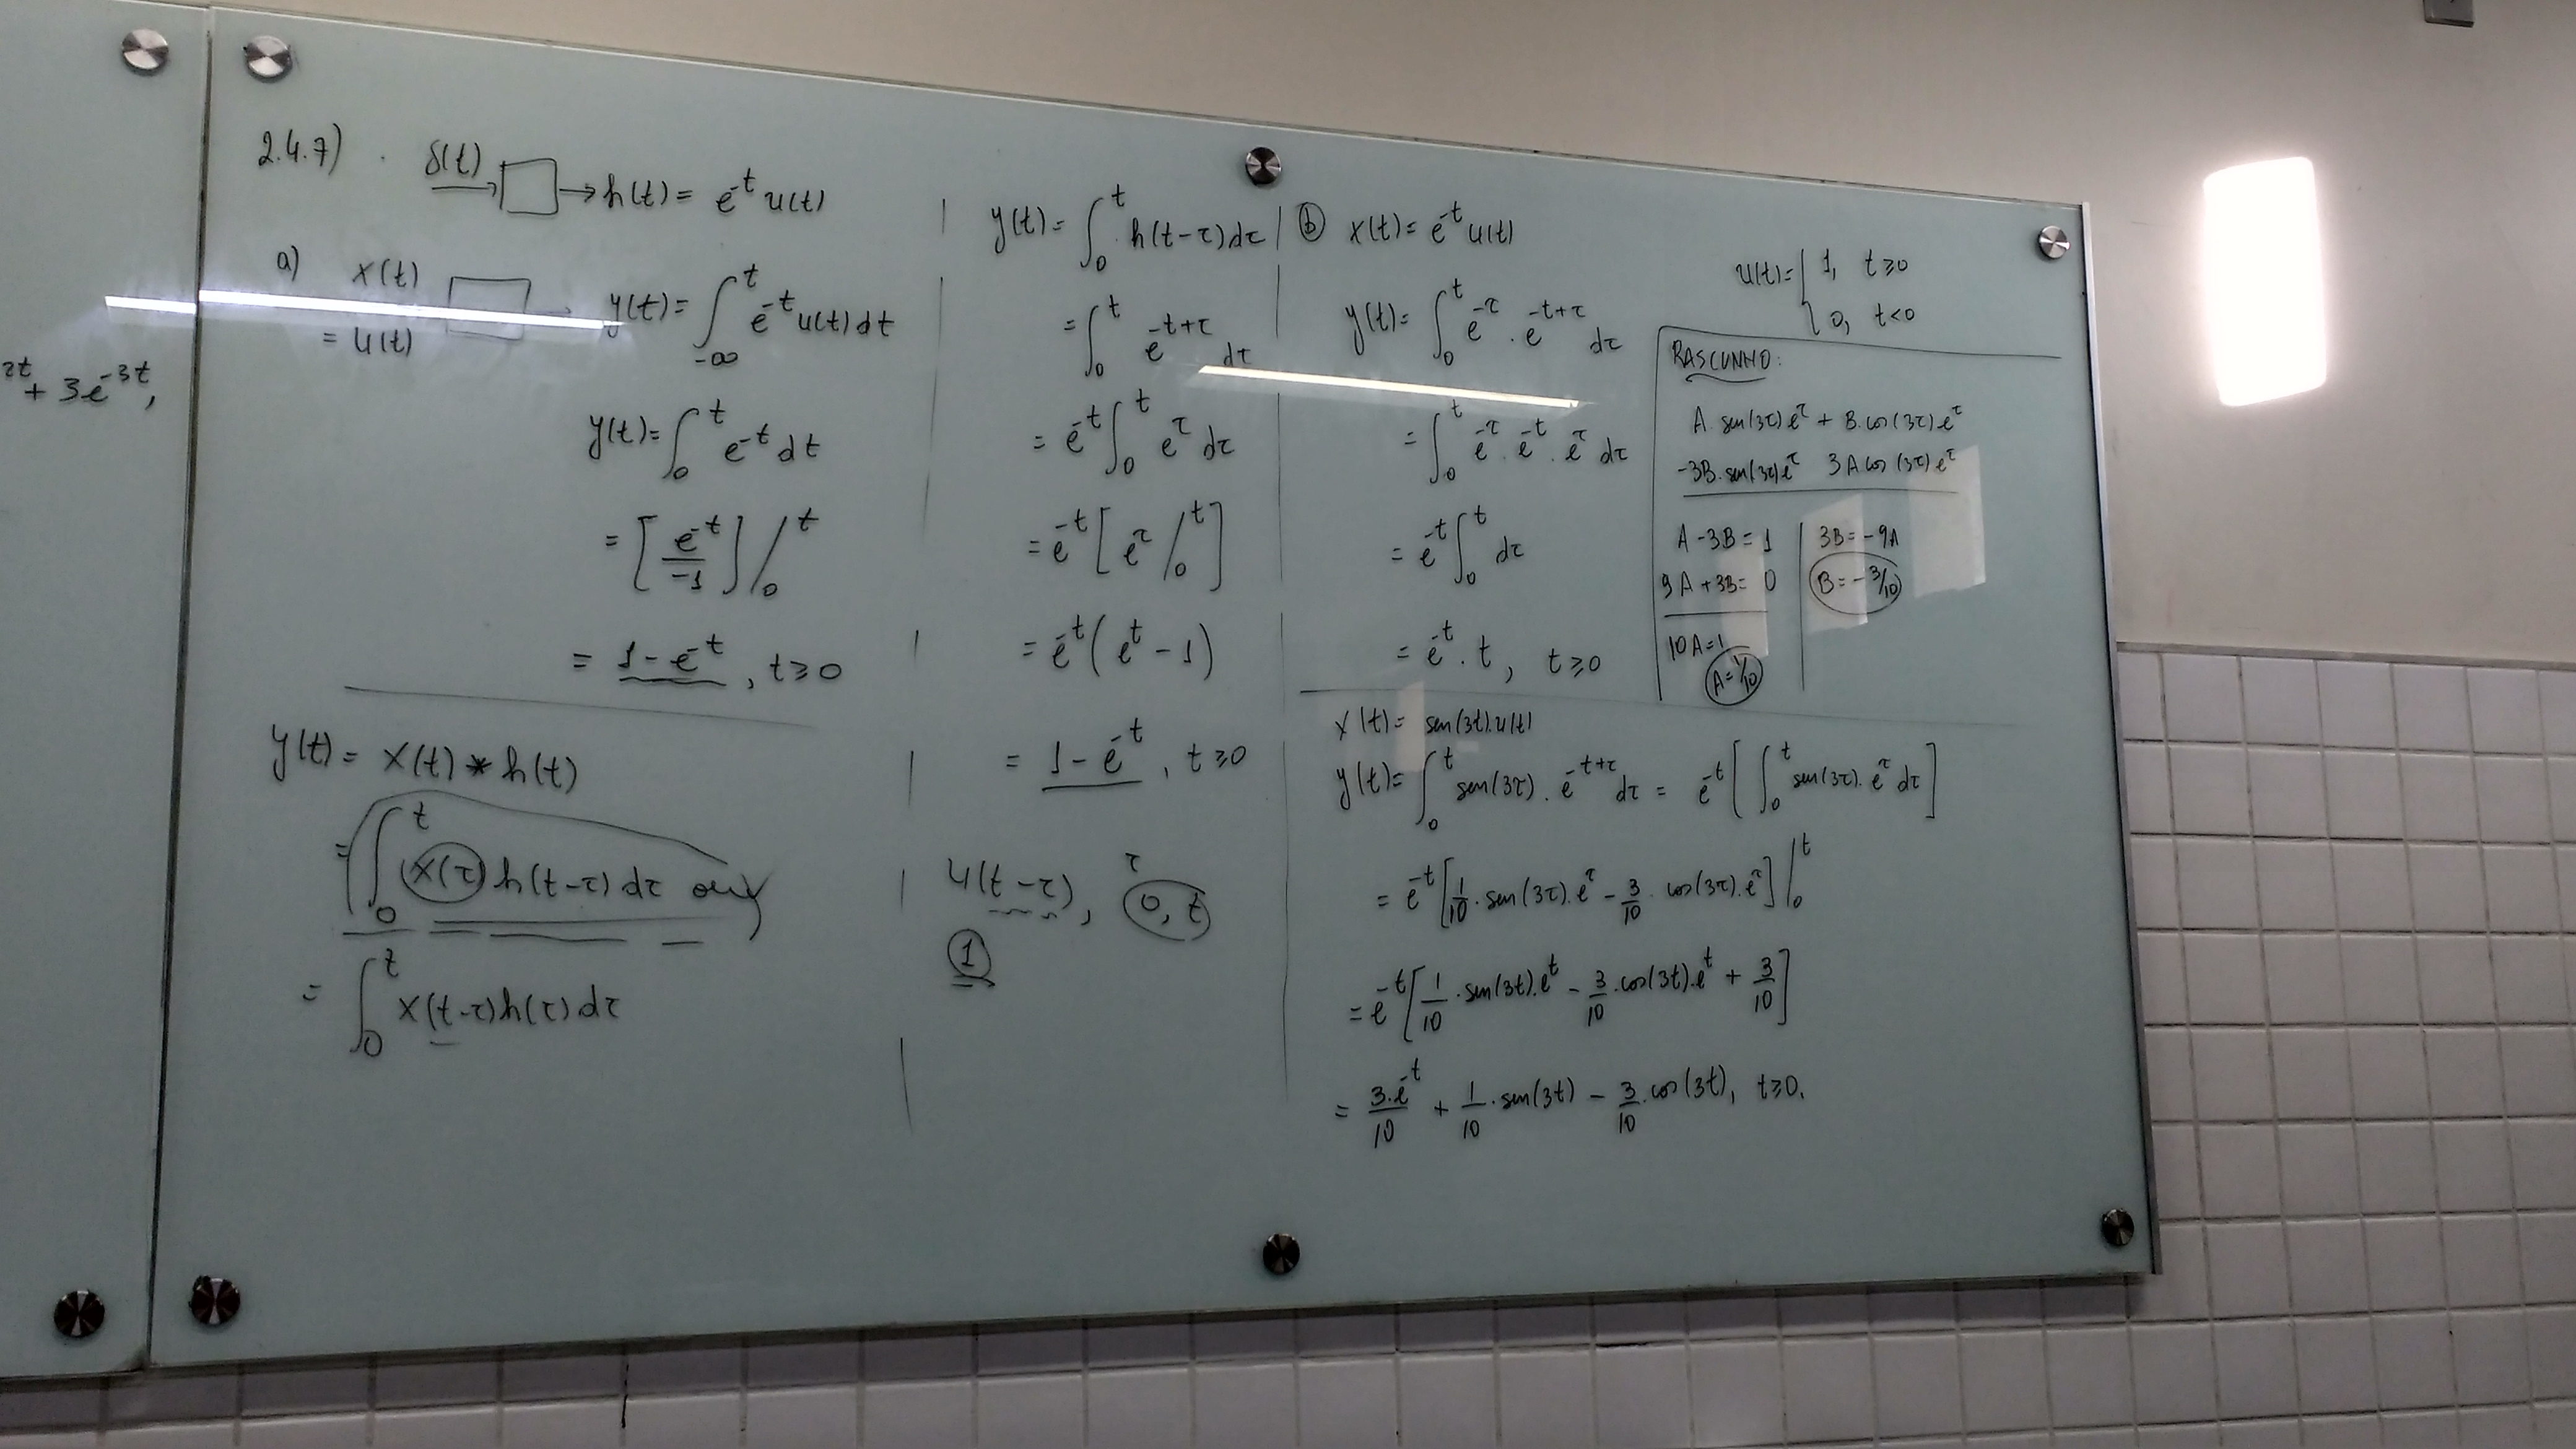 2t + 3e^-3t,
2.4.7) δ(t) → □ → h(t) = e^-t u(t)
a) x(t) = u(t) □ → y(t) = ∫_-∞^t e^-t u(t) dt
y(t) = ∫_0^t e^-t dt
= [e^-t / -1] /_0^t
= 1 - e^-t , t ≥ 0
y(t) = x(t) * h(t)
= ∫_0^t x(τ) h(t-τ) dτ ou
= ∫_0^t x(t-τ) h(τ) dτ
y(t) = ∫_0^t h(t-τ) dτ
= ∫_0^t e^-t+τ dτ
= e^-t ∫_0^t e^τ dτ
= e^-t [e^τ /_0^t]
= e^-t (e^t - 1)
= 1 - e^-t , t ≥ 0
τ
u(t-τ), 0, t
1
b x(t) = e^-t u(t)
y(t) = ∫_0^t e^-τ . e^-t+τ dτ
= ∫_0^t e^-τ . e^-t . e^τ dτ
= e^-t ∫_0^t dτ
= e^-t . t , t ≥ 0
u(t) = { 1, t ≥ 0
0, t < 0
RASCUNHO:
A. sen(3τ) e^τ + B. cos(3τ) e^τ
-3B. sen(3τ) e^τ 3A cos(3τ) e^τ
A - 3B = 1 | 3B = -9A
9A + 3B = 0 | B = -3/10
10A = 1
A = 1/10
x(t) = sen(3t). u(t)
y(t) = ∫_0^t sen(3τ) . e^-t+τ dτ = e^-t [∫_0^t sen(3τ). e^τ dτ]
= e^-t [1/10 . sen(3τ). e^τ - 3/10 . cos(3τ). e^τ] |_0^t
= e^-t [1/10 . sen(3t). e^t - 3/10 . cos(3t). e^t + 3/10]
= 3.e^-t/10 + 1/10 . sen(3t) - 3/10 . cos(3t), t ≥ 0.